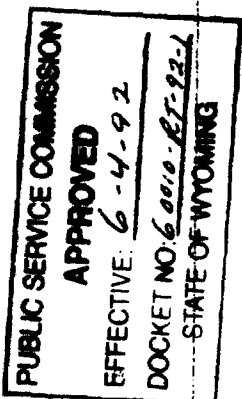 PUBLIC SERVICE COMMISSION
APPROVED
EFFECTIVE: 6-4-92
DOCKET NO: 60010-RT-92-1
STATE OF WYOMING